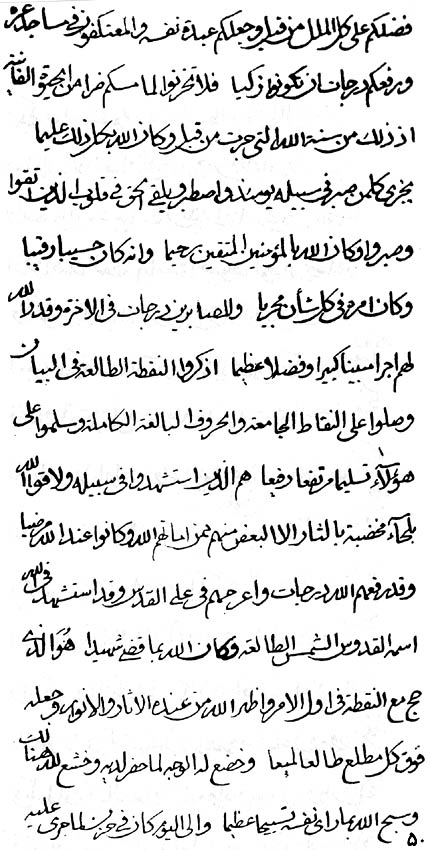 فضلكم على كل الملل من قبل وجعلكم عبدة نفسه والمعتكفون فى مساجد عزه
ورفعكم درجات ان تكونوا زكيا فلا تحزنوا لما مسكم ضرا من الحيوة الفانية
اذ ذلك من سنة الله التى جرت من قبل وكان الله بكل ذلك عليما
يجزى كلمن صبر فى سبيله يومئذ واصطبر ويلقى الحق فى قلوب الذين تقوا
وصبروا وكان الله بالمؤمنين المتقين رحيما وانه كان حسيبا رقيبا
وكان امره فى كل شأن مجريا وللصابرين درجات فى الاخرة وقدر الله
لهم اجرا مبينا كبيرا وفضلا عظيما اذكروا النقطة الطالعة فى البيان
وصلوا على النقاط الجامعة والحروف البالغة الكاملة وسلموا على
هؤلاء تسليما مرتفعا رفيعا هم الذين استشهدوا فى سبيله ولاقوا الله
بلحاء مخضبة بالثار الا البعض منهم ممن اماتهم الله وكانوا عند الله مرضيا
وقد رفعهم الله درجات واعرجهم فى على القدس وقد استشهد فى الله
اسمه القدوس الشمس الطالعة وكان الله بما قضى شهيدا هو الذى
حج مع النقطة فى اول الامر واظهر الله من عنده الاثار والانوار وجعله
فوق كل مطلع طالعا لميعا وخضع له الوجه لما حضر لديه وخشع لله هنالك
وسبح الله بما راى نفسه تسبيحا عظيما والى اليوم كان فى حزن لما جرى عليه
٥٠